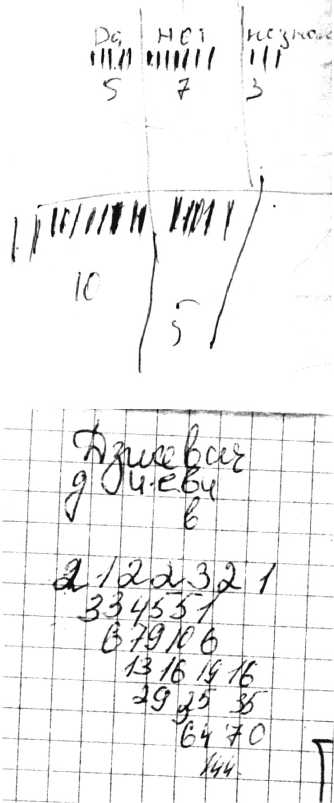 Да нет незнаю
5 7 3
10 5
в
2 1 2 2 3 2 1
3 3 4 5 5 1
6 7 9 10 6
13 16 19 16
29 35 35
64 70
144